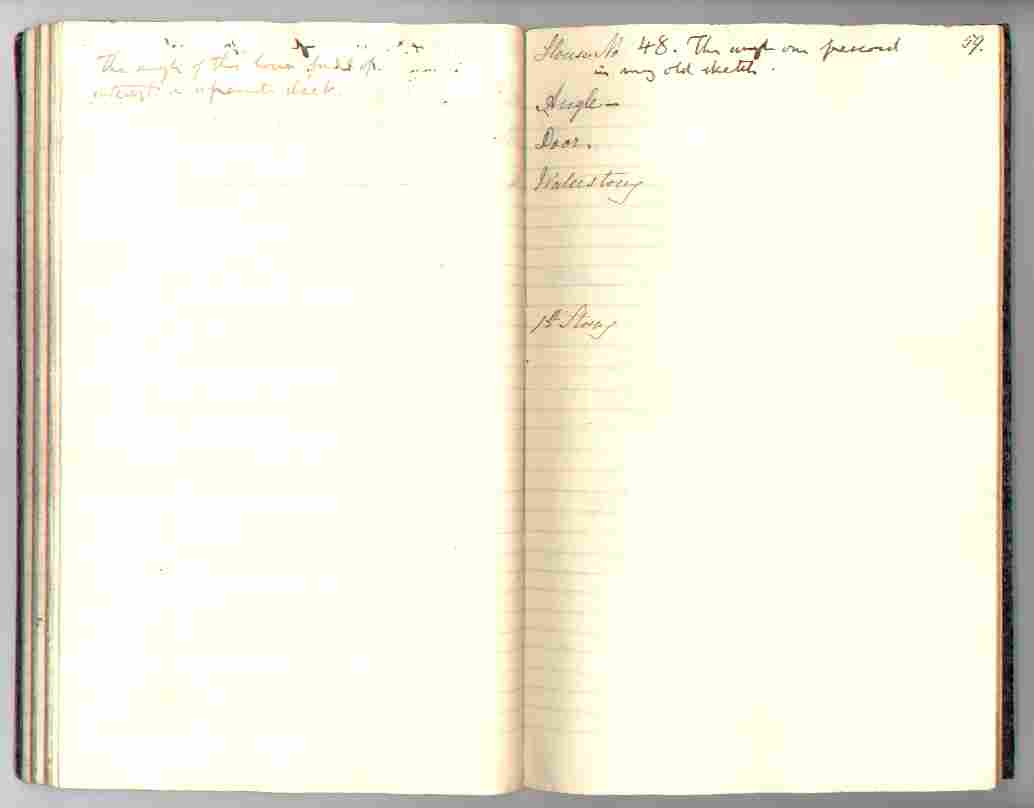 The angle of this house
interest a separate sheet.
House No 48. The angle one pressed 59.
in my old sketch.
Angle—
Door.
Waterstory
1st Story